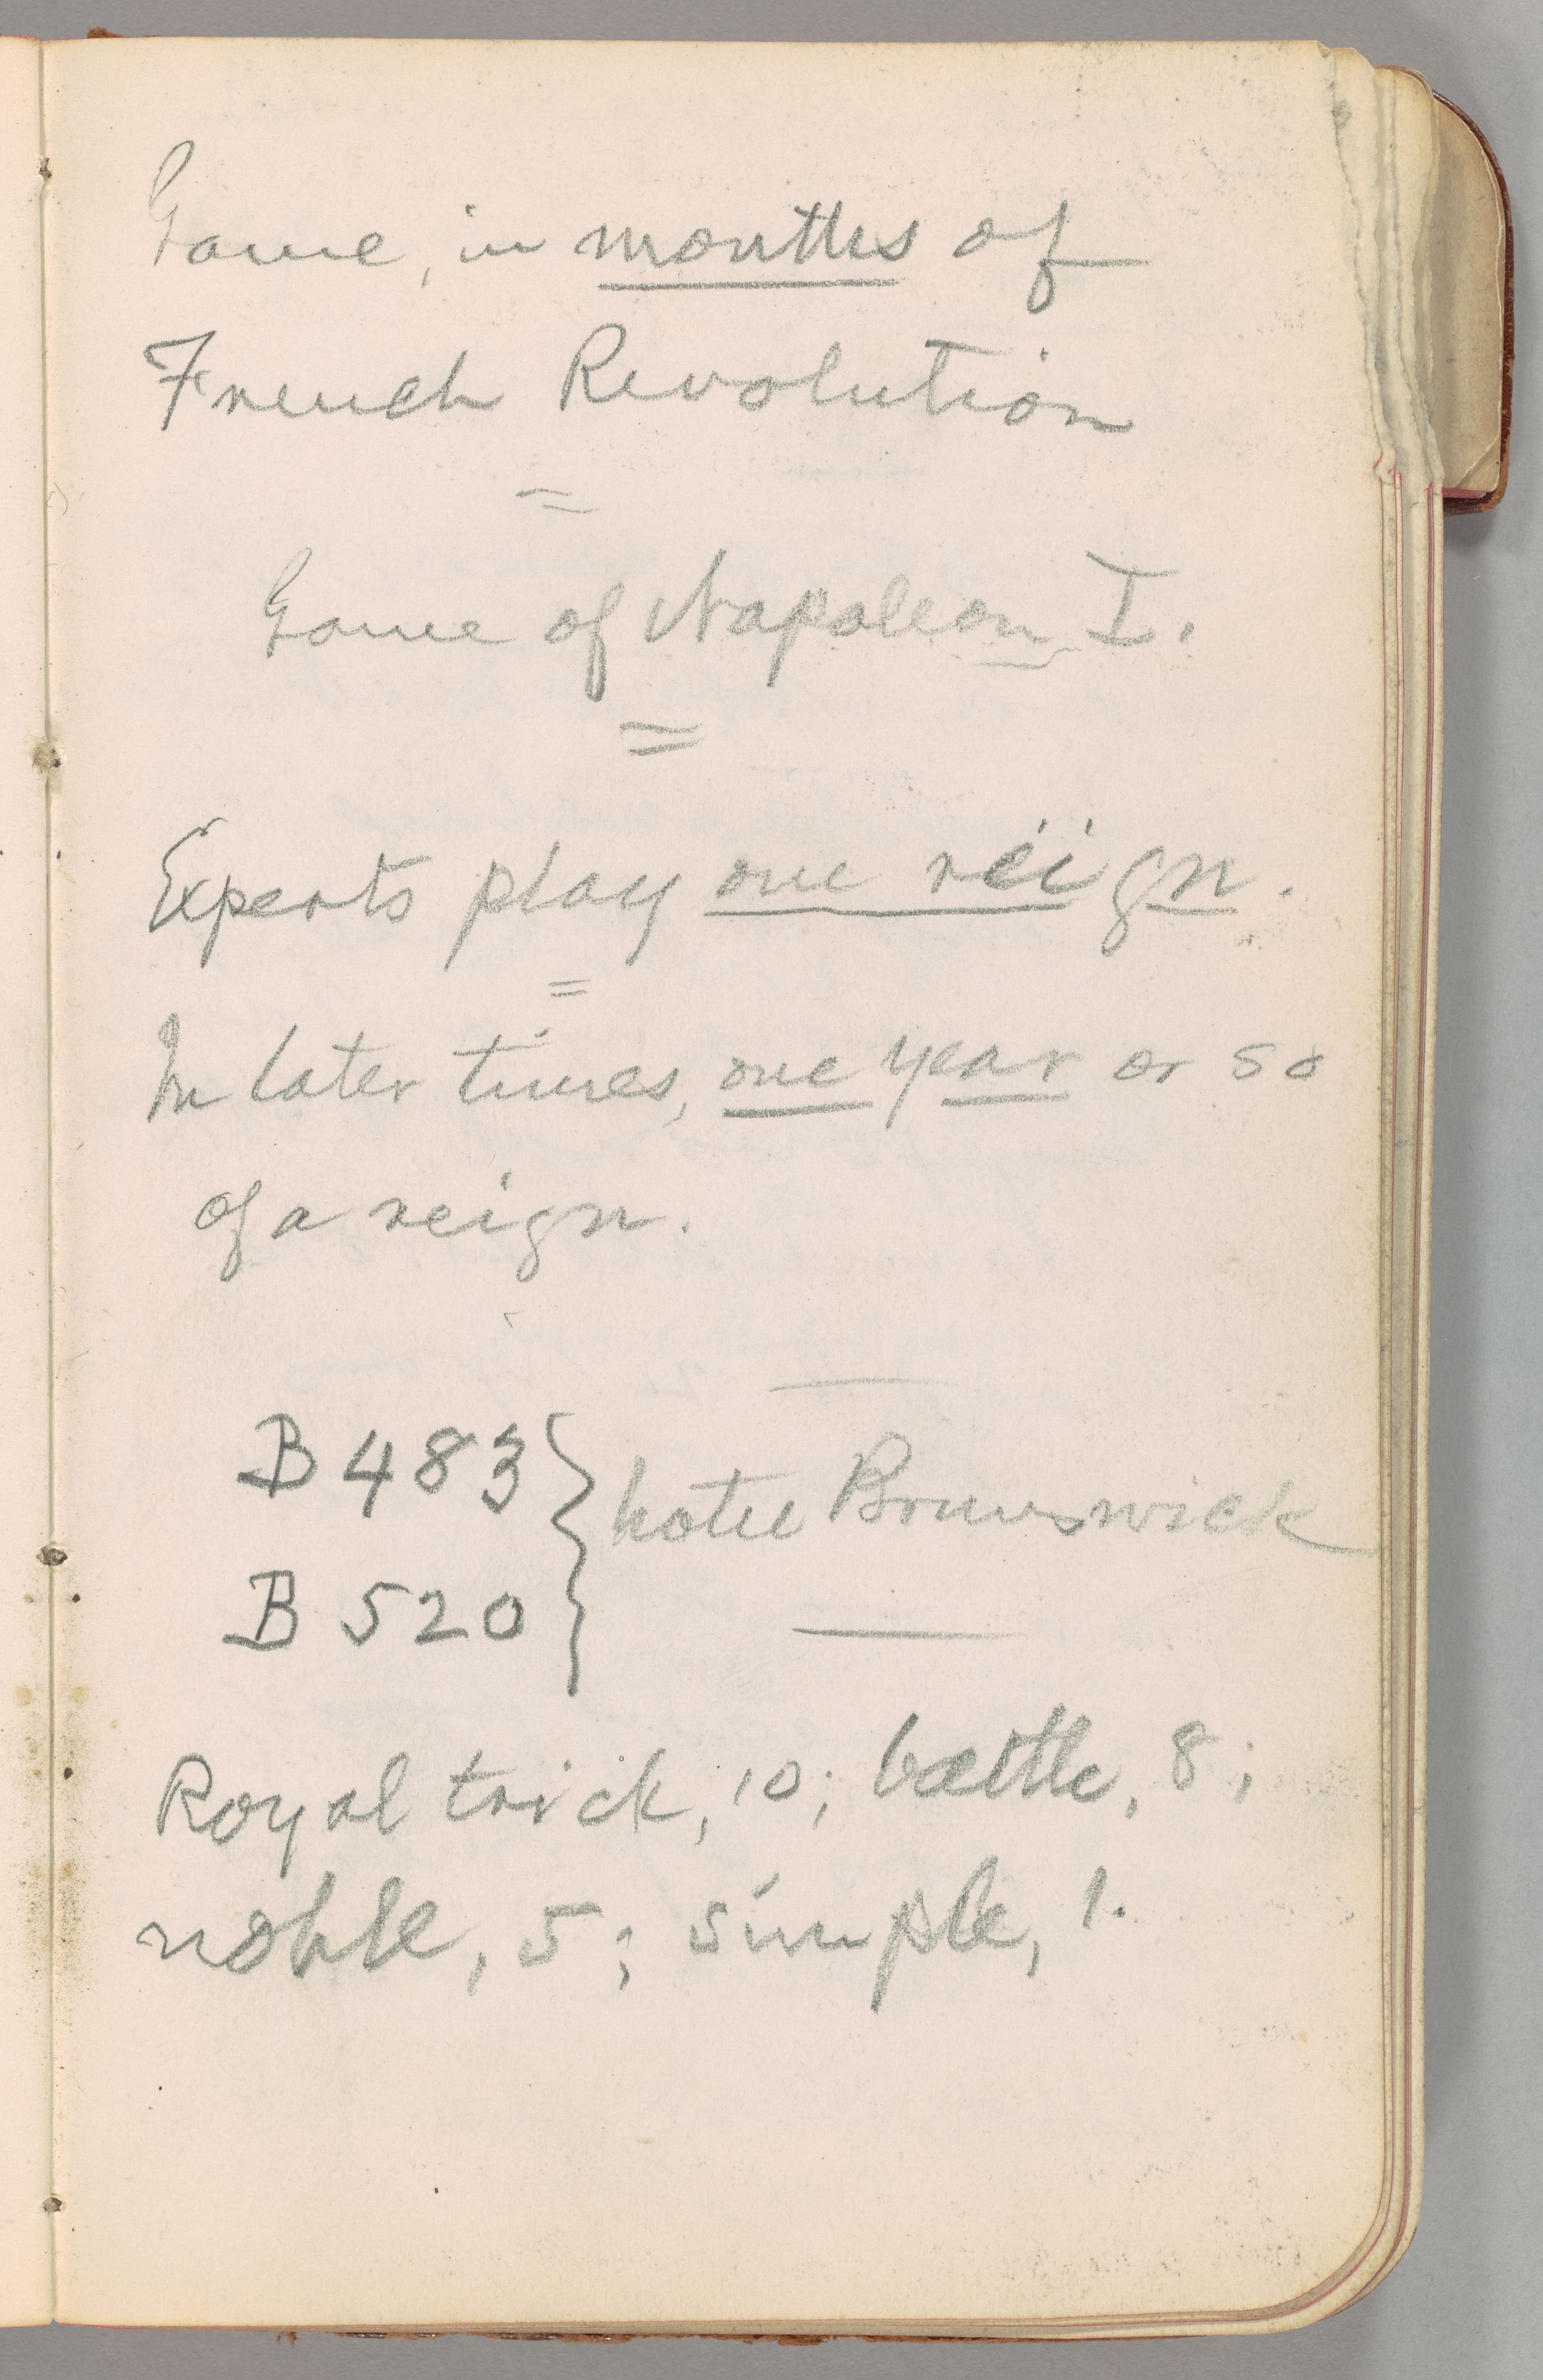 Game, in months of
French Revolution
=
Game of Napoleon I.
=
Experts play one reign.
=
In later times, one year or so
of a reign.
B 483 } hotel Brunswick
B 520
Royal trick, 10; battle, 8;
noble, 5; simple, 1.